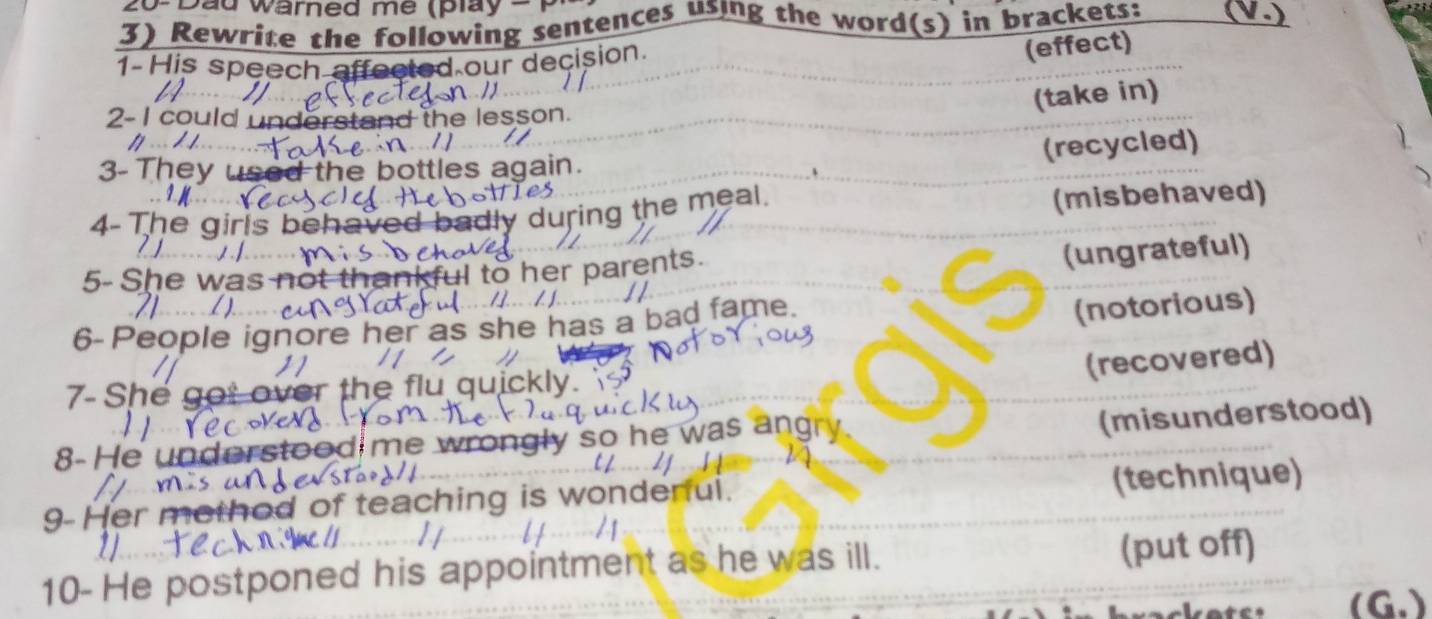 20- Dad warned me (play –
3) Rewrite the following sentences using the word(s) in brackets: (V.)
1- His speech affected our decision. (effect)
" " effected on " "
2- I could understand the lesson. (take in)
" " take in " "
3- They used the bottles again. (recycled)
" recycled the bottles
4- The girls behaved badly during the meal. (misbehaved)
" " misbehaved " " "
5- She was not thankful to her parents. (ungrateful)
" " ungrateful " " "
6- People ignore her as she has a bad fame. (notorious)
" " " " " is notorious
7- She got over the flu quickly. (recovered)
" recoverd from the flu quickly
8- He understood me wrongly so he was angry. (misunderstood)
" misunderstood " " " " "
9- Her method of teaching is wonderful. (technique)
" " " "
10- He postponed his appointment as he was ill. (put off)
in brackets: (G.)
Girgis